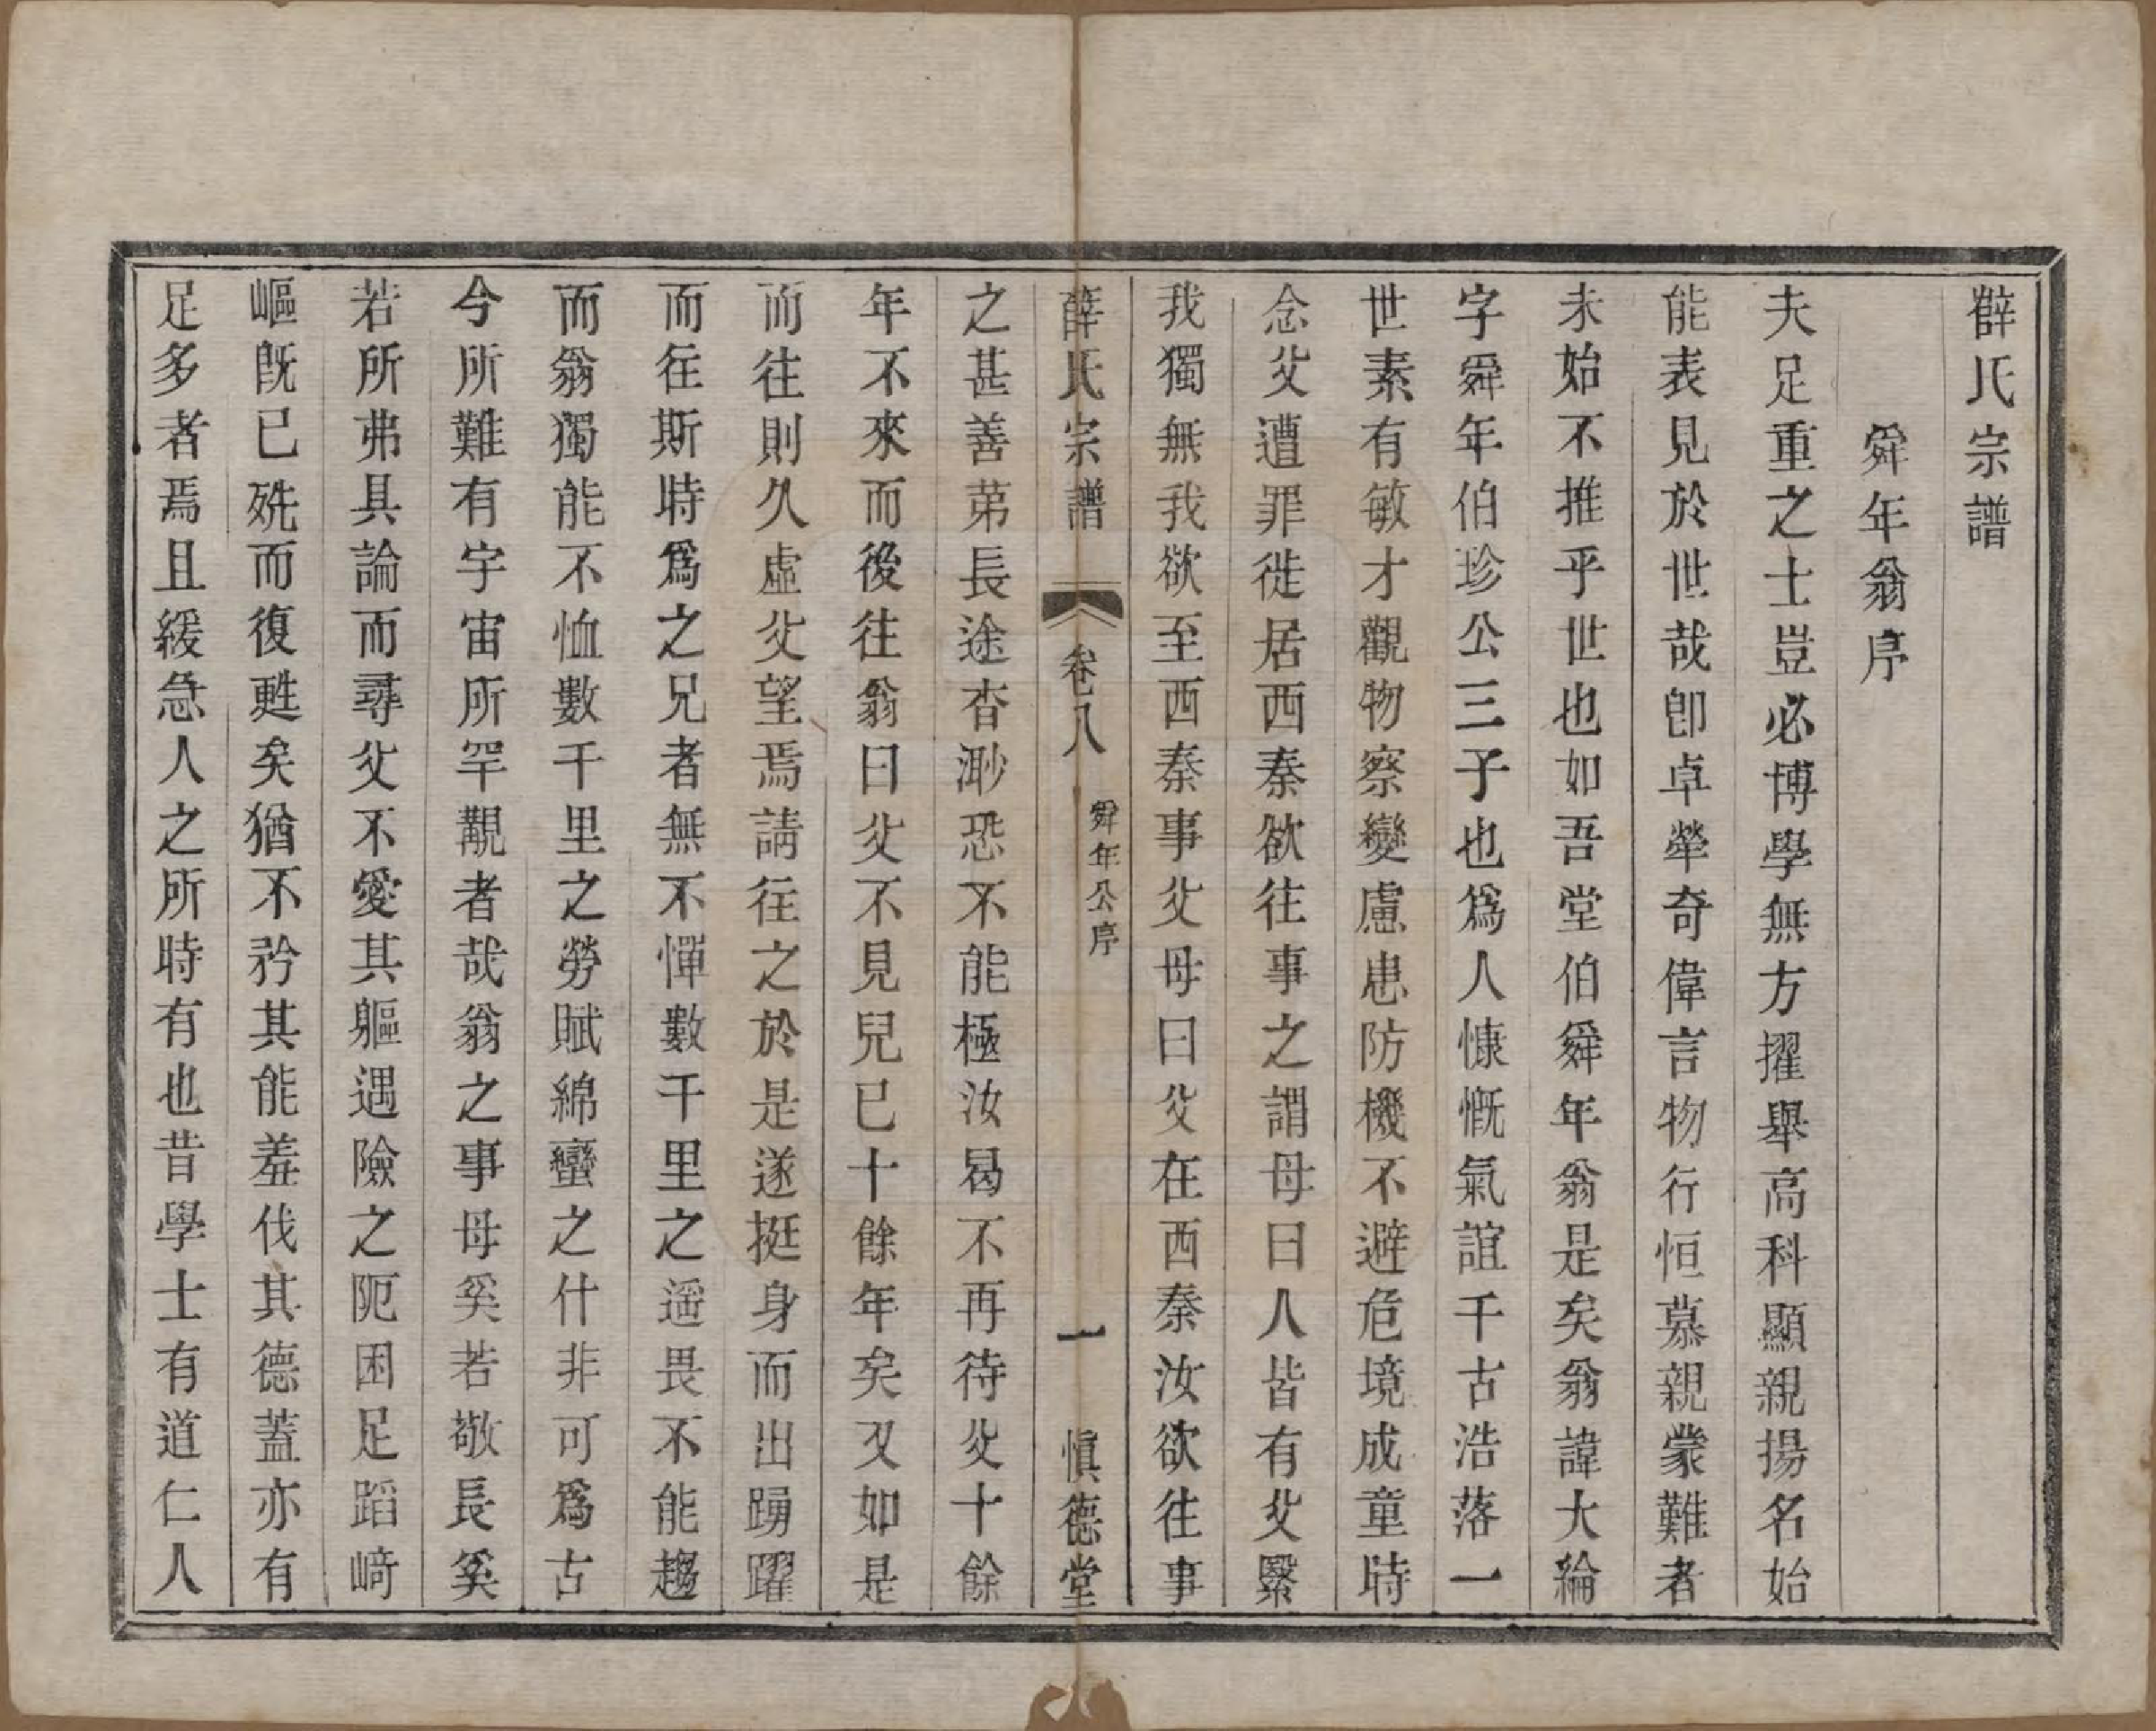 薛氏宗譜
舜年翁序
夫足重之士豈必博學無方擢舉高科顯親揚名始
能表見於世哉卽卓犖奇偉言物行恒慕親蒙難者
未始不推乎世也如吾堂伯舜年翁是矣翁諱大綸
字舜年伯珍公三子也爲人慷慨氣誼千古浩落一
世素有敏才觀物察變慮患防機不避危境成童時
念父遭罪徙居西秦欲往事之謂母曰人皆有父繄
我獨無我欲至西秦事父母曰父在西秦汝欲往事
薛氏宗譜 卷八 舜年公序 一 愼德堂
之甚善第長途杳渺恐不能極汝曷不再待父十餘
年不來而後往翁曰父不見兒已十餘年矣又如是
而往則久虛父望焉請往之於是遂挺身而出踴躍
而往斯時爲之兄者無不憚數千里之遥畏不能趨
而翁獨能不恤數千里之勞賦綿蠻之什非可爲古
今所難有宇宙所罕覯者哉翁之事母奚若敬長奚
若所弗具論而尋父不愛其軀遇險之阨困足蹈﨑
嶇旣已㱡而復甦矣猶不矜其能羞伐其德蓋亦有
足多者焉且緩急人之所時有也昔學士有道仁人